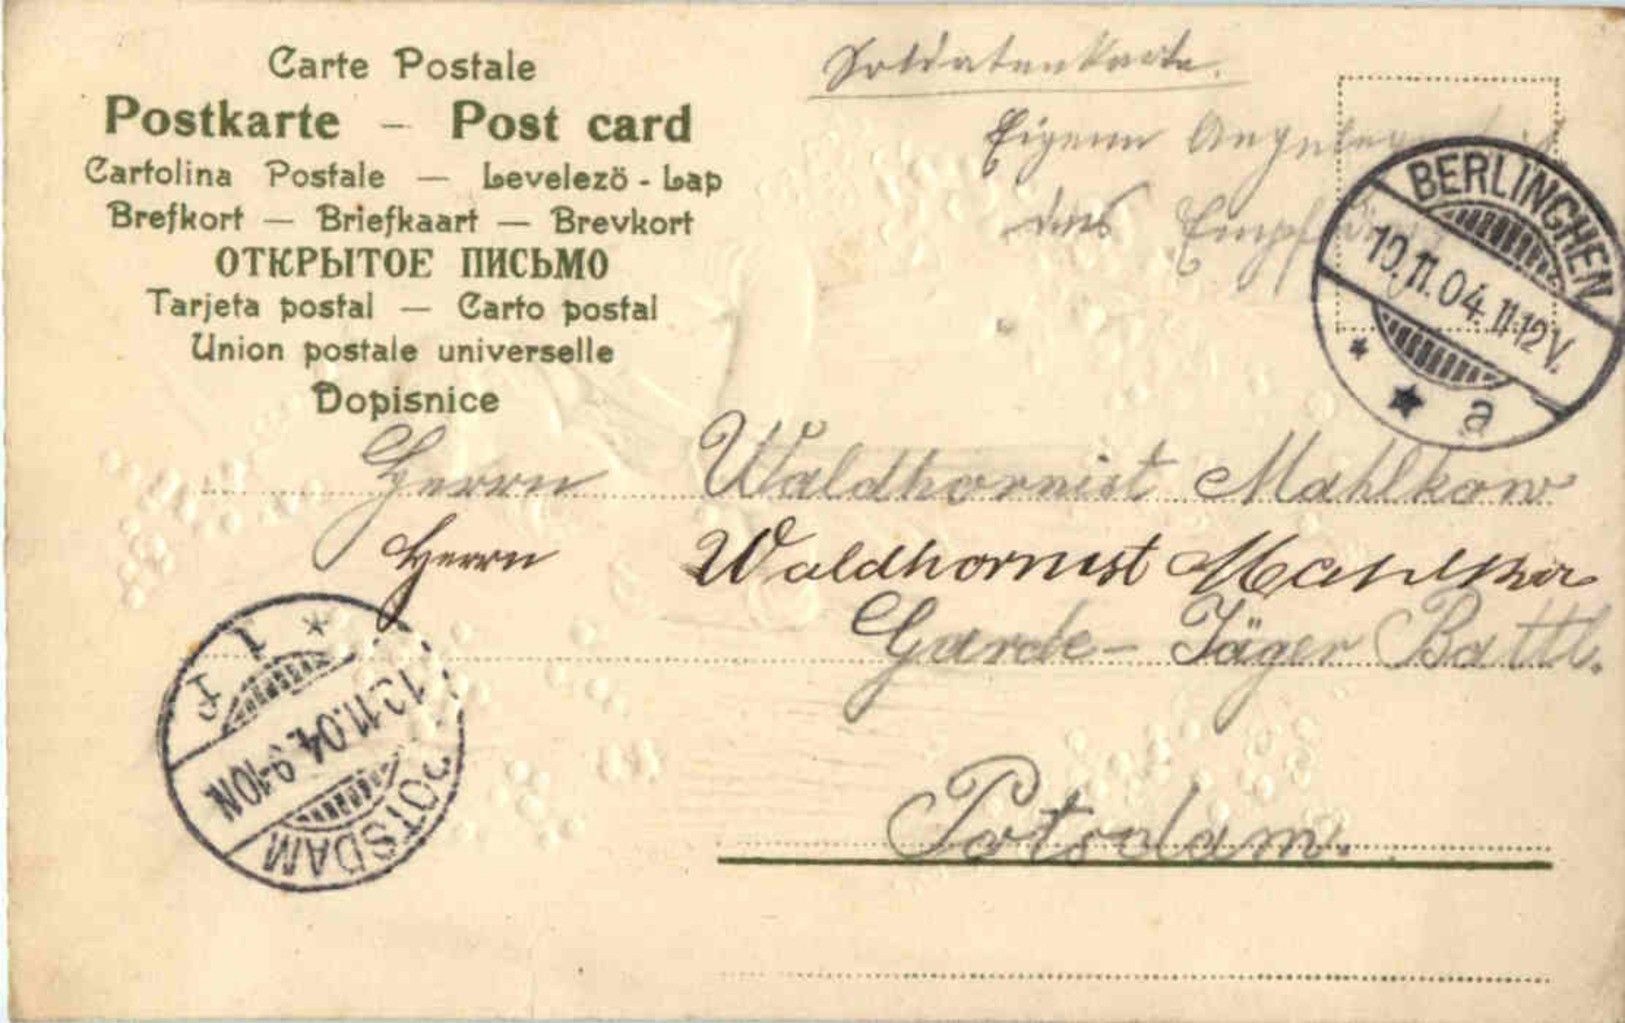 Carte Postale
Postkarte – Post card
Cartolina Postale — Levelezö - Lap
Brefkort — Briefkaart — Brevkort
ОТКРЫТОЕ ПИСЬМО
Tarjeta postal — Carto postal
Union postale universelle
Dopisnice
Soldatenkarte.
Eigene Angelegenheit
des Empfängers
BERLINCHEN
10.11.04. 11-12V.
* * a
Herrn Waldhornist Mahlkow
Herrn Waldhornist
Garde-Jäger Battl.
Potsdam.
POTSDAM
10.11.04. 9-10N.
* 1